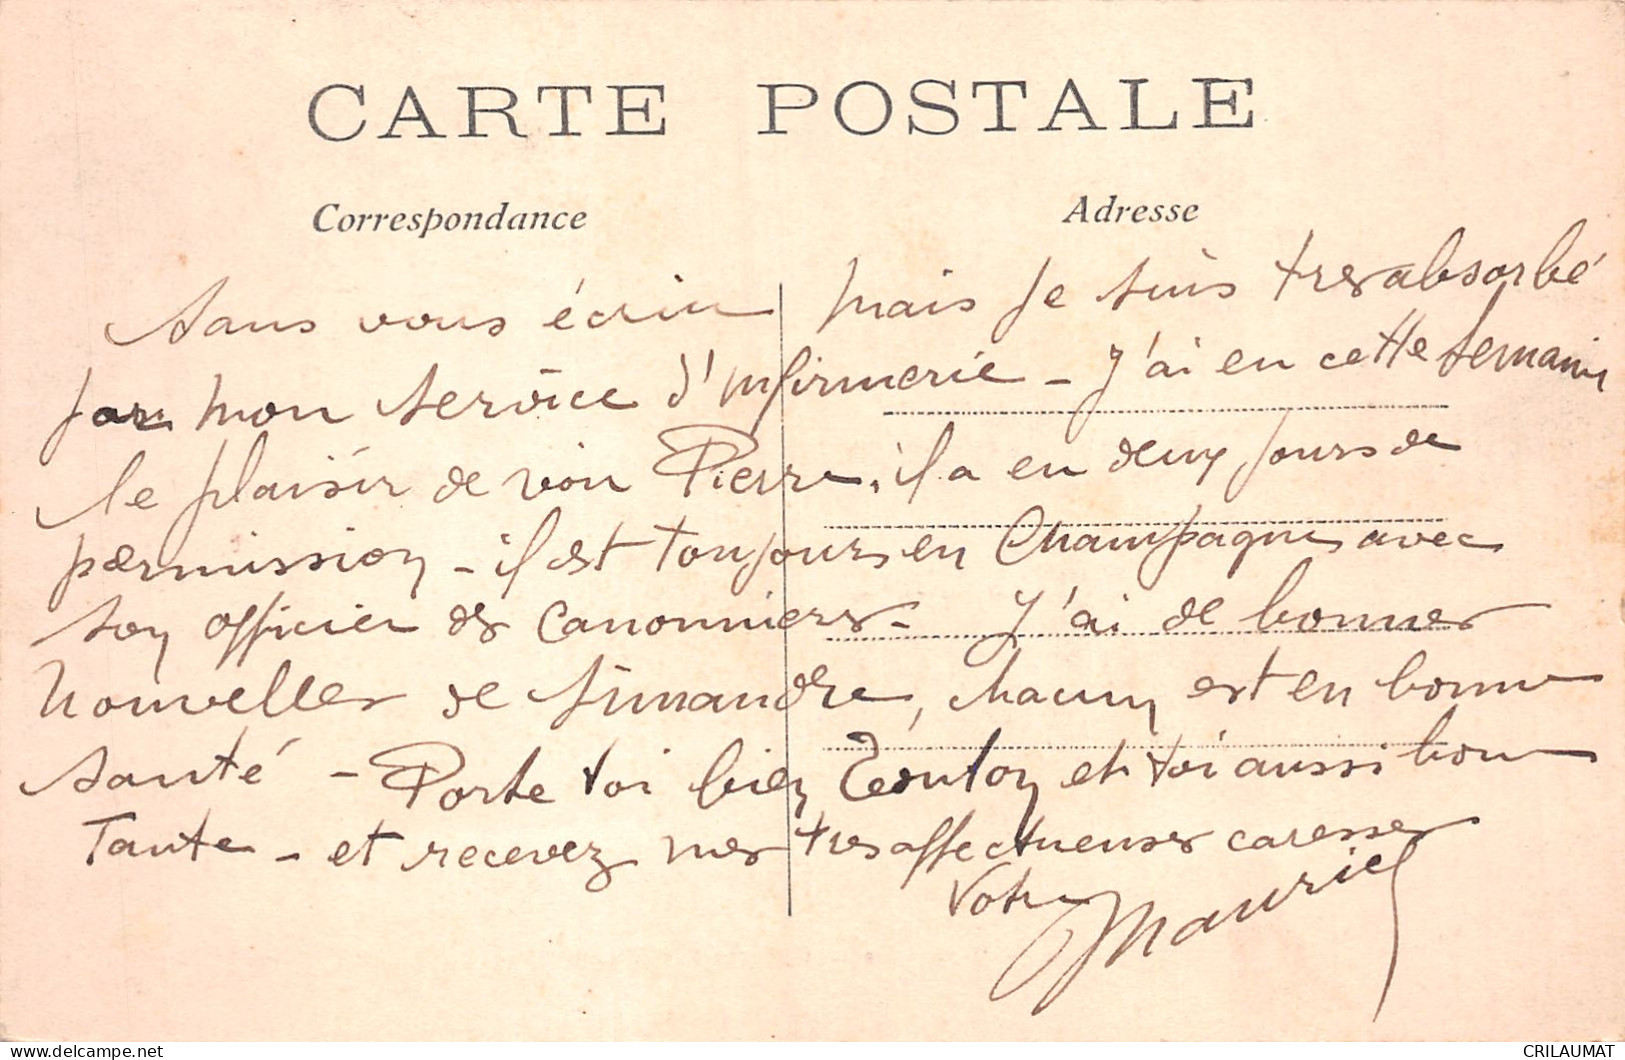 CARTE POSTALE
Correspondance
Adresse
sans vous écrire mais je suis tres absorbé
par mon service d'infirmerie - J'ai eu cette semaine
le plaisir de voir Pierre, il a eu deux jours de
permission - il est toujours en Champagne avec
son officier de Canonniers - J'ai de bonnes
nouvelles de Simandre, chacun est en bonne
santé - Porte toi bien Tonton et toi aussi bonne
Tante - et recevez mes tres affectueuses caresses
Votre Maurice
CRILAUMAT